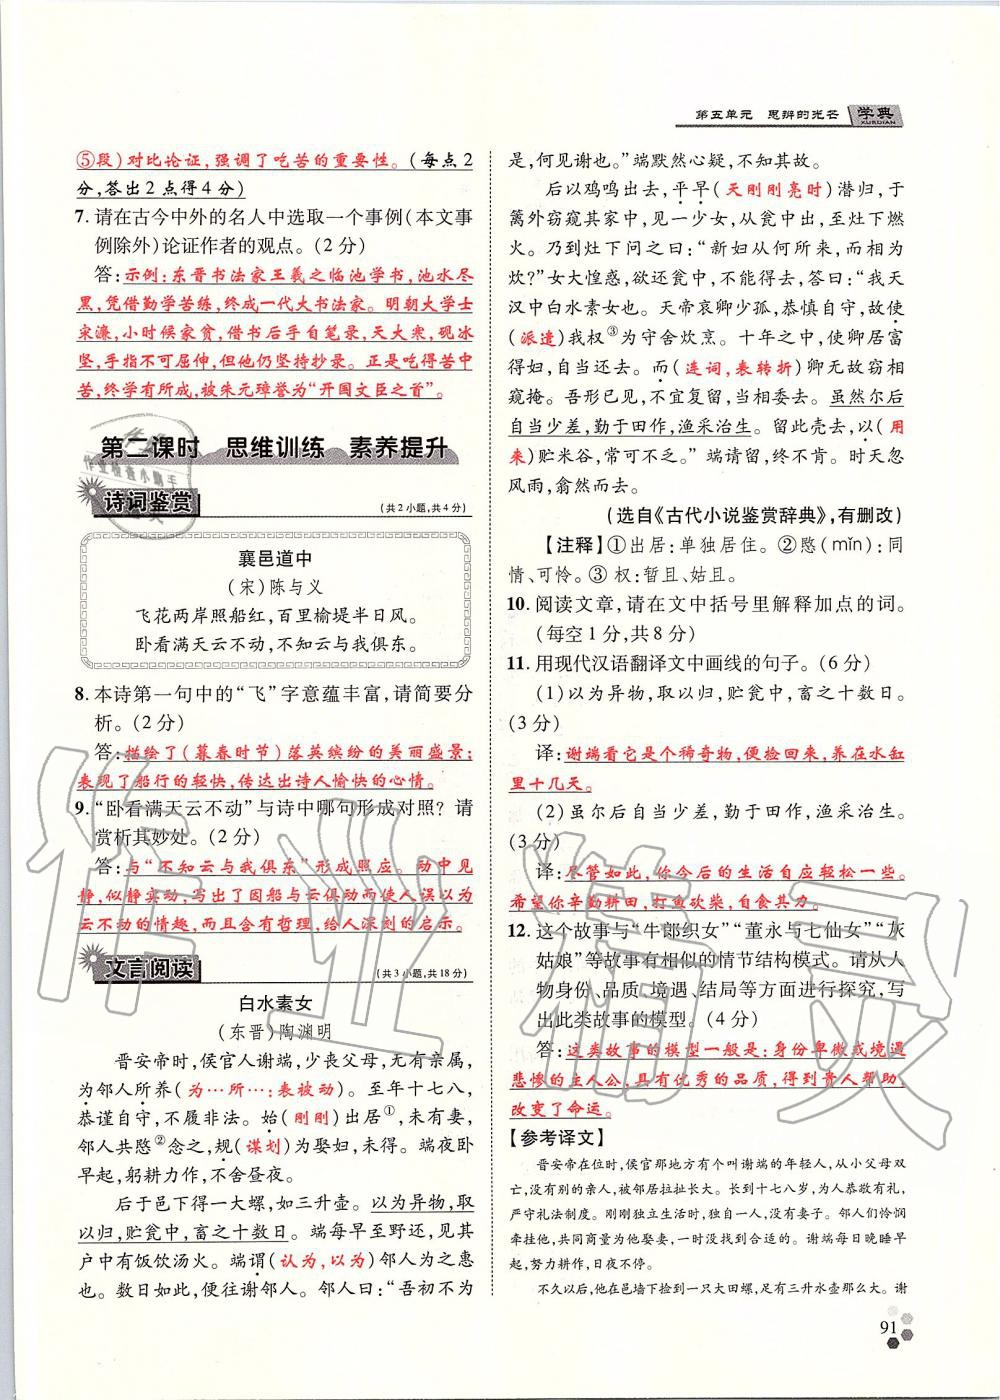 第五单元 思辨的光芒 学典
XUEDIAN
⑤段)对比论证,强调了吃苦的重要性。(每点2
分,答出2点得4分)
7. 请在古今中外的名人中选取一个事例(本文事
例除外)论证作者的观点。(2分)
答:示例:东晋书法家王羲之临池学书,池水尽
黑,凭借勤学苦练,终成一代大书法家。明朝大学士
宋濂,小时候家贫,借书后手自笔录,天大寒,砚冰
坚,手指不可屈伸,但他仍坚持抄录。正是吃得苦中
苦,终学有所成,被朱元璋誉为“开国文臣之首”。
第二课时 思维训练 素养提升
诗词鉴赏 (共2小题,共4分)
襄邑道中
(宋)陈与义
飞花两岸照船红,百里榆堤半日风。
卧看满天云不动,不知云与我俱东。
8. 本诗第一句中的“飞”字意蕴丰富,请简要分
析。(2分)
答:描绘了(暮春时节)落英缤纷的美丽盛景;
表现了船行的轻快,传达出诗人愉快的心情。
9. “卧看满天云不动”与诗中哪句形成对照?请
赏析其妙处。(2分)
答:与“不知云与我俱东”形成照应。动中见
静,似静实动,写出了因船与云俱动而使人误以为
云不动的情趣,而且含有哲理,给人深刻的启示。
文言阅读 (共3小题,共18分)
白水素女
(东晋)陶渊明
晋安帝时,侯官人谢端,少丧父母,无有亲属,
为邻人所养(为…所…:表被动)。至年十七八,
恭谨自守,不履非法。始(刚刚)出居①,未有妻,
邻人共愍②念之,规(谋划)为娶妇,未得。端夜卧
早起,躬耕力作,不舍昼夜。
后于邑下得一大螺,如三升壶。以为异物,取
以归,贮瓮中,畜之十数日。端每早至野还,见其
户中有饭饮汤火。端谓(认为,以为)邻人为之惠
也。数日如此,便往谢邻人。邻人曰:“吾初不为
是,何见谢也。”端默然心疑,不知其故。
后以鸡鸣出去,平早(天刚刚亮时)潜归,于
篱外窃窥其家中,见一少女,从瓮中出,至灶下燃
火。乃到灶下问之曰:“新妇从何所来,而相为
炊?”女大惶惑,欲还瓮中,不能得去,答曰:“我天
汉中白水素女也。天帝哀卿少孤,恭慎自守,故使
(派遣)我权③为守舍炊烹。十年之中,使卿居富
得妇,自当还去。而(连词,表转折)卿无故窃相
窥掩。吾形已见,不宜复留,当相委去。虽然尔后
自当少差,勤于田作,渔采治生。留此壳去,以(用
来)贮米谷,常可不乏。”端请留,终不肯。时天忽
风雨,翕然而去。
(选自《古代小说鉴赏辞典》,有删改)
【注释】①出居:单独居住。②愍(mǐn):同
情、可怜。③权:暂且、姑且。
10. 阅读文章,请在文中括号里解释加点的词。
(每空1分,共8分)
11. 用现代汉语翻译文中画线的句子。(6分)
(1)以为异物,取以归,贮瓮中,畜之十数日。
(3分)
译:谢端看它是个稀奇物,便捡回来,养在水缸
里十几天。
(2)虽尔后自当少差,勤于田作,渔采治生。
(3分)
译:尽管如此,你今后的生活自应轻松一些。
希望你辛勤耕田,打鱼砍柴,自食其力。
12. 这个故事与“牛郎织女”“董永与七仙女”“灰
姑娘”等故事有相似的情节结构模式。请从人
物身份、品质、境遇、结局等方面进行探究,写
出此类故事的模型。(4分)
答:这类故事的模型一般是:身份卑微或境遇
悲惨的主人公,具有优秀的品质,得到贵人帮助,
改变了命运。
【参考译文】
晋安帝在位时,侯官那地方有个叫谢端的年轻人,从小父母双
亡,没有别的亲人,被邻居拉扯长大。长到十七八岁,为人恭敬有礼,
严守礼法制度。刚刚独立生活时,独自一人,没有妻子。邻人们怜悯
牵挂他,共同商量为他娶妻,一时没找到合适的。谢端每日晚睡早
起,努力耕作,日夜不停。
不久以后,他在邑墙下捡到一只大田螺,足有三升水壶那么大。谢
91
作业精灵